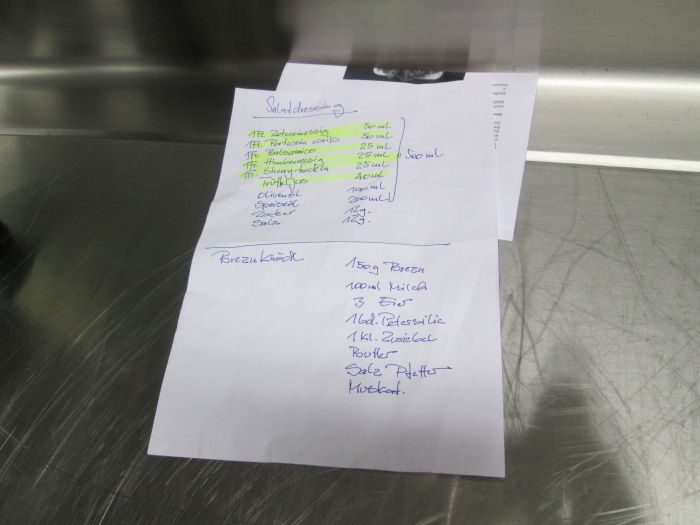 Salatdressing
1Fl. Rotweinessig 50ml
1Fl. Portwein weiß 50ml
1Fl. Balsamico 25ml
1Fl. Himbeeressig 25ml
1Fl. Sherry trocken 25ml
Trüffeljus 40ml
500ml
Olivenöl 100ml
Speiseöl 200ml
Zucker 12g.
Salz 12g.
Brezn Knödl
150g Brezn
100ml Milch
3 Eier
1 bd. Petersilie
1 kl. Zwiebel
Butter
Salz Pfeffer
Muskat.